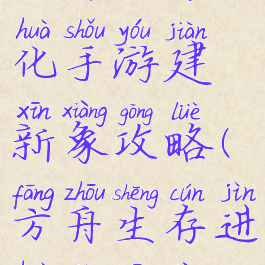 huà shǒu yóu jiàn
化手游建
xīn xiàng gōng lüè
新象攻略(
fāng zhōu shēng cún jìn
方舟生存进